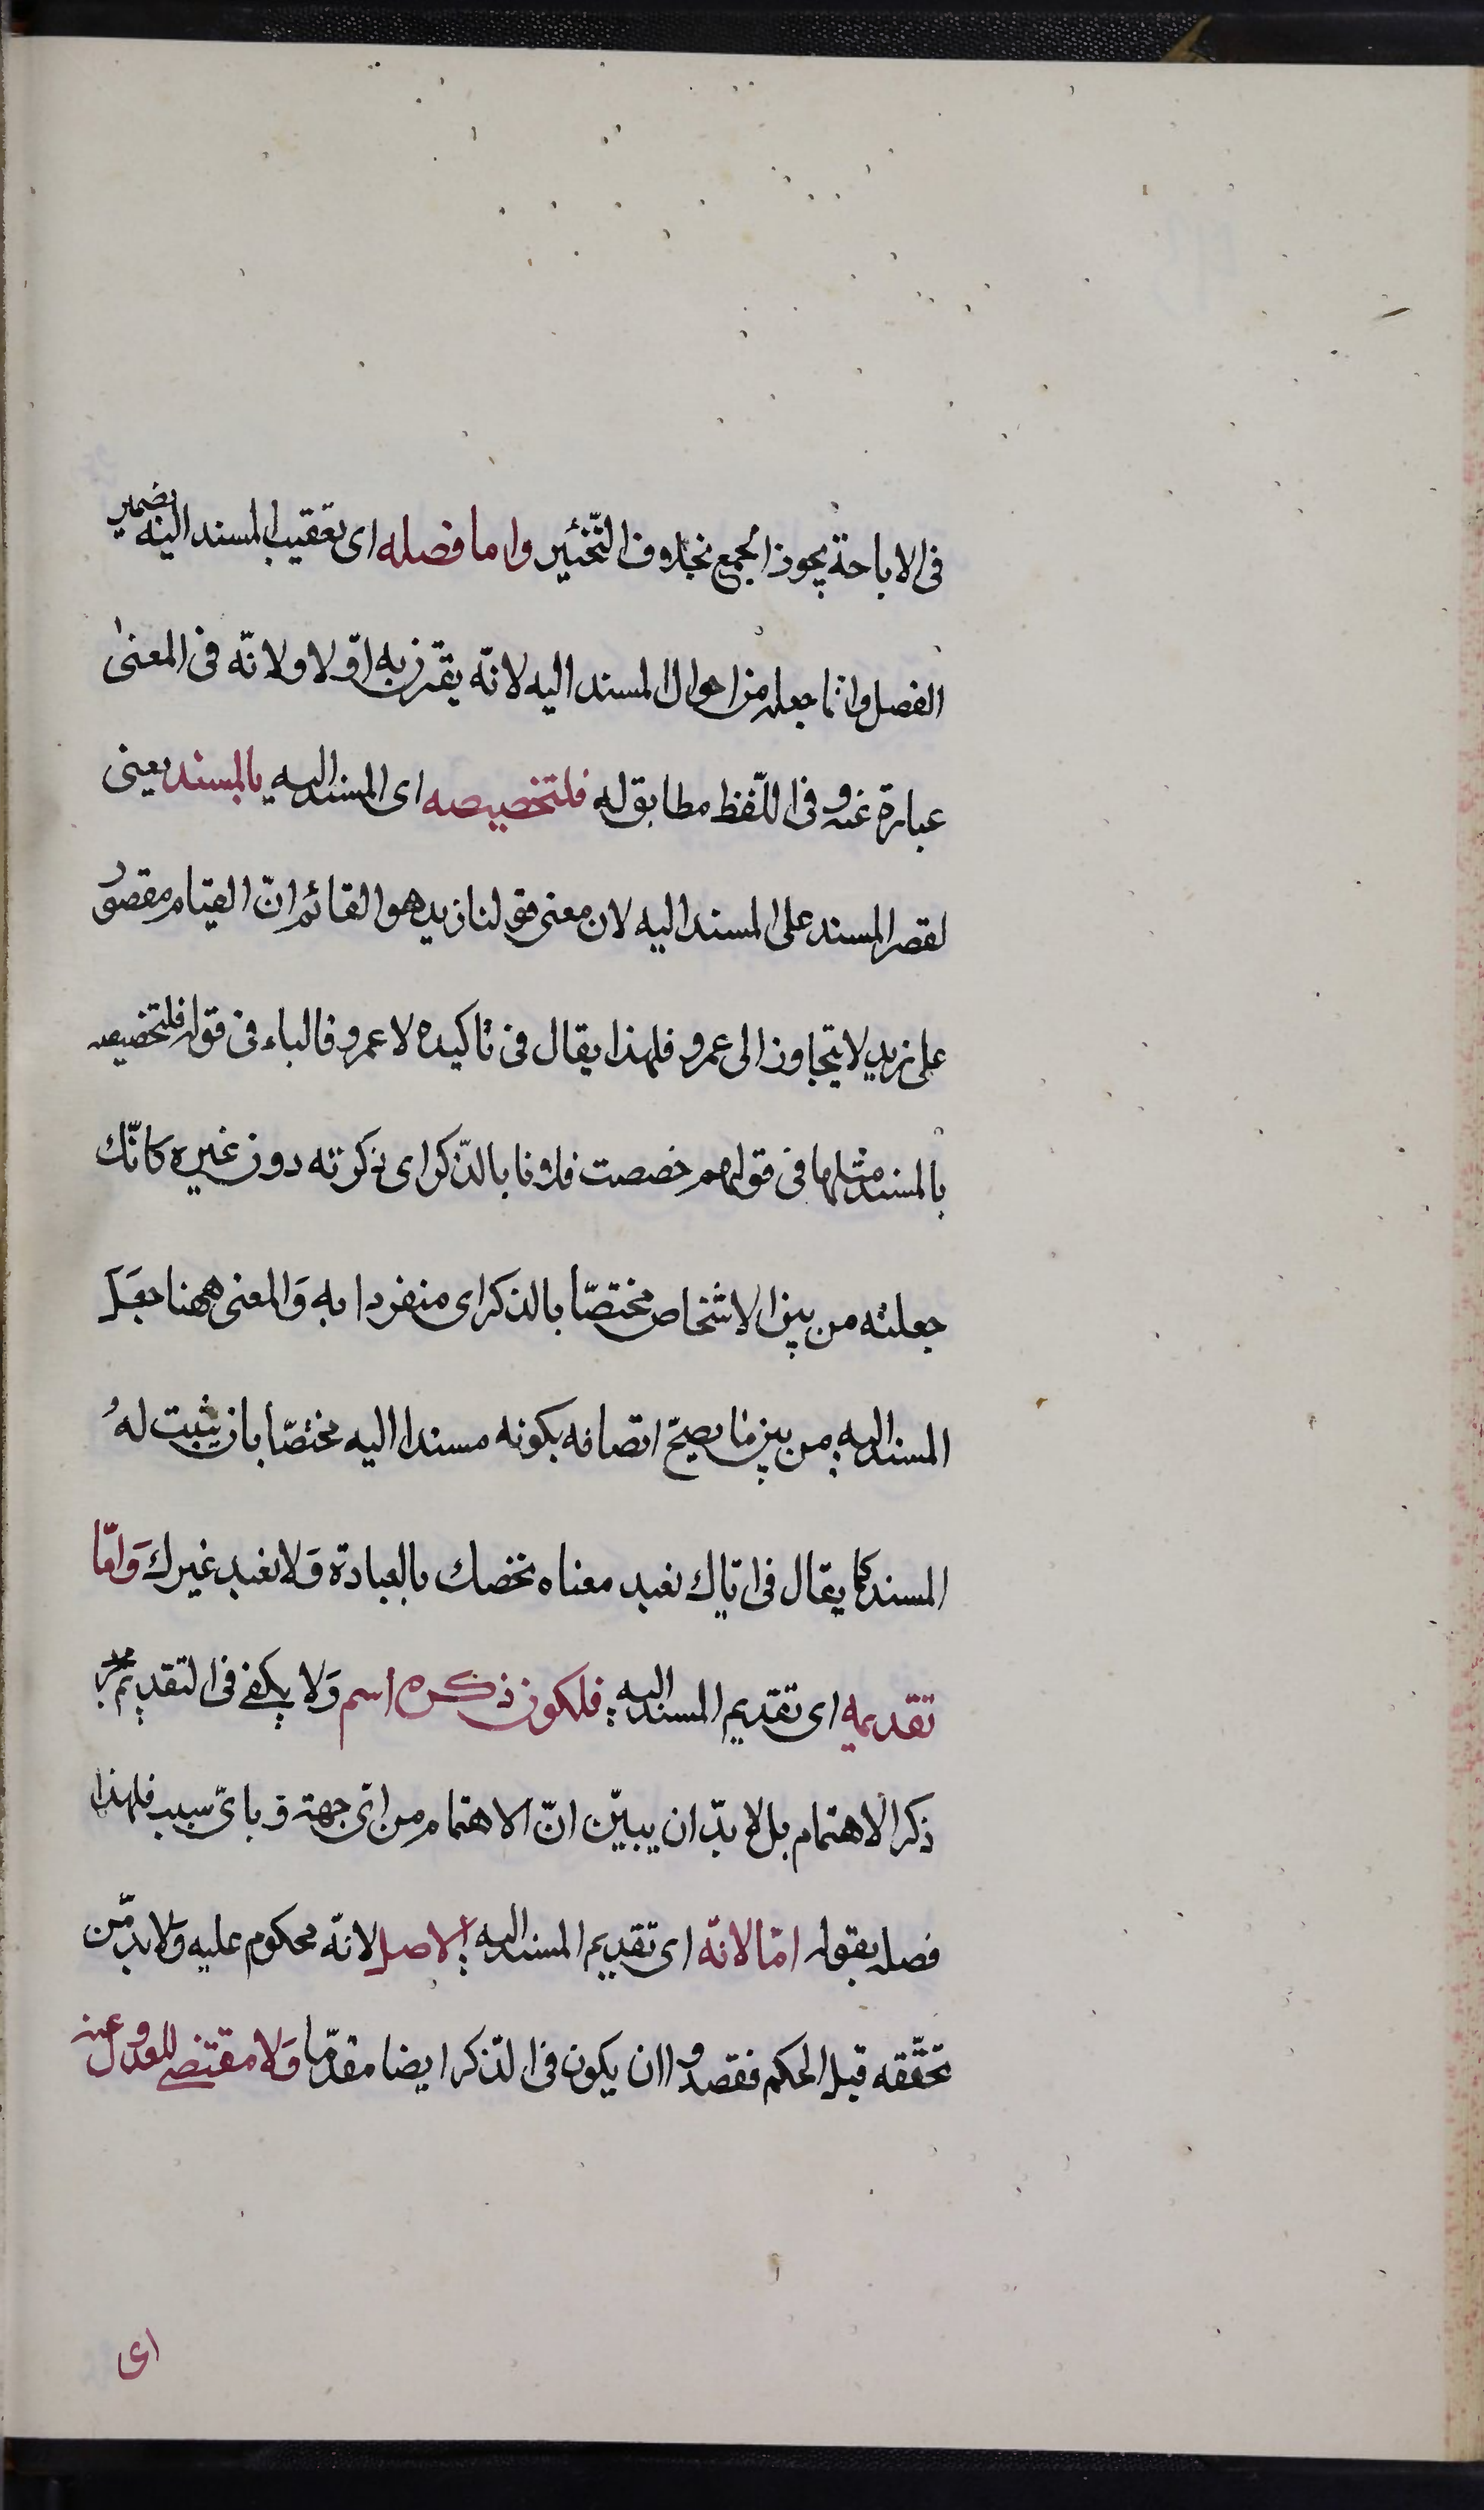 فى الاباحة يجوز الجمع بخلاف التّخيير واما فصله اى تعقيب المسند اليه بضمير
الفصل وانّما جعله من احوال المسند اليه لانّه يقترن به اوّلا ولانّه فى المعنىٰ
عبارة عنه وفى اللّفظ مطابق له فلتخصيصه اى المسند اليه بالمسند يعنى
لقصر المسند على المسند اليه لان معنى قولنا زيد هو القائم انّ القيام مقصور
على زيد لا يتجاوز الى عمرو فلهذا يقال فى تاكيده لا عمرو فالباء فى قوله فلتخصيصه
بالمسند مثلها فى قولهم خصصت فلانا بالذّكر اى ذكرته دون غيره كانّك
جعلته من بين الاشخاص مختصّا بالذكر اى منفردا به وَالمعنى ههنا جعَل
المسند اليه من بين ما يصحّ اتصافه بكونه مسندا اليه مختصّا بان يثبت لهُ
المسند كما يقال فى ايّاك نعبد معناه نخصك بالعبادة وَلا نعبد غيرك وَامّا
تقديمه اى تقديم المسند اليه فلكون ذكره اهم وَلا يكفى فى التقديم مجرد
ذكر الاهتمام بل لا بدّ ان يبيّن انّ الاهتمام من اىّ جهة و باىّ سبب فلهذا
فصله بقوله امّا لانّه اى تقديم المسند اليه الاصل لانّه محكوم عليه وَلا بدّ من
تحقّقه قبل الحكم فقصدوا ان يكون فى الذكر ايضا مقدّما وَلا مقتضى للعدول عنه
اى